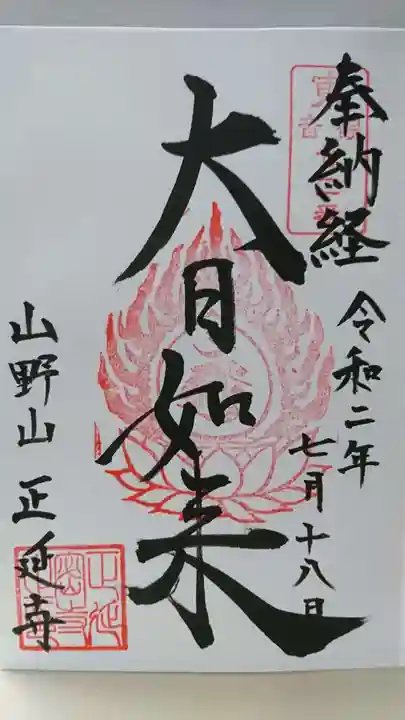 奉納経
令和二年
七月十八日
大日如来
山野山 正延寺